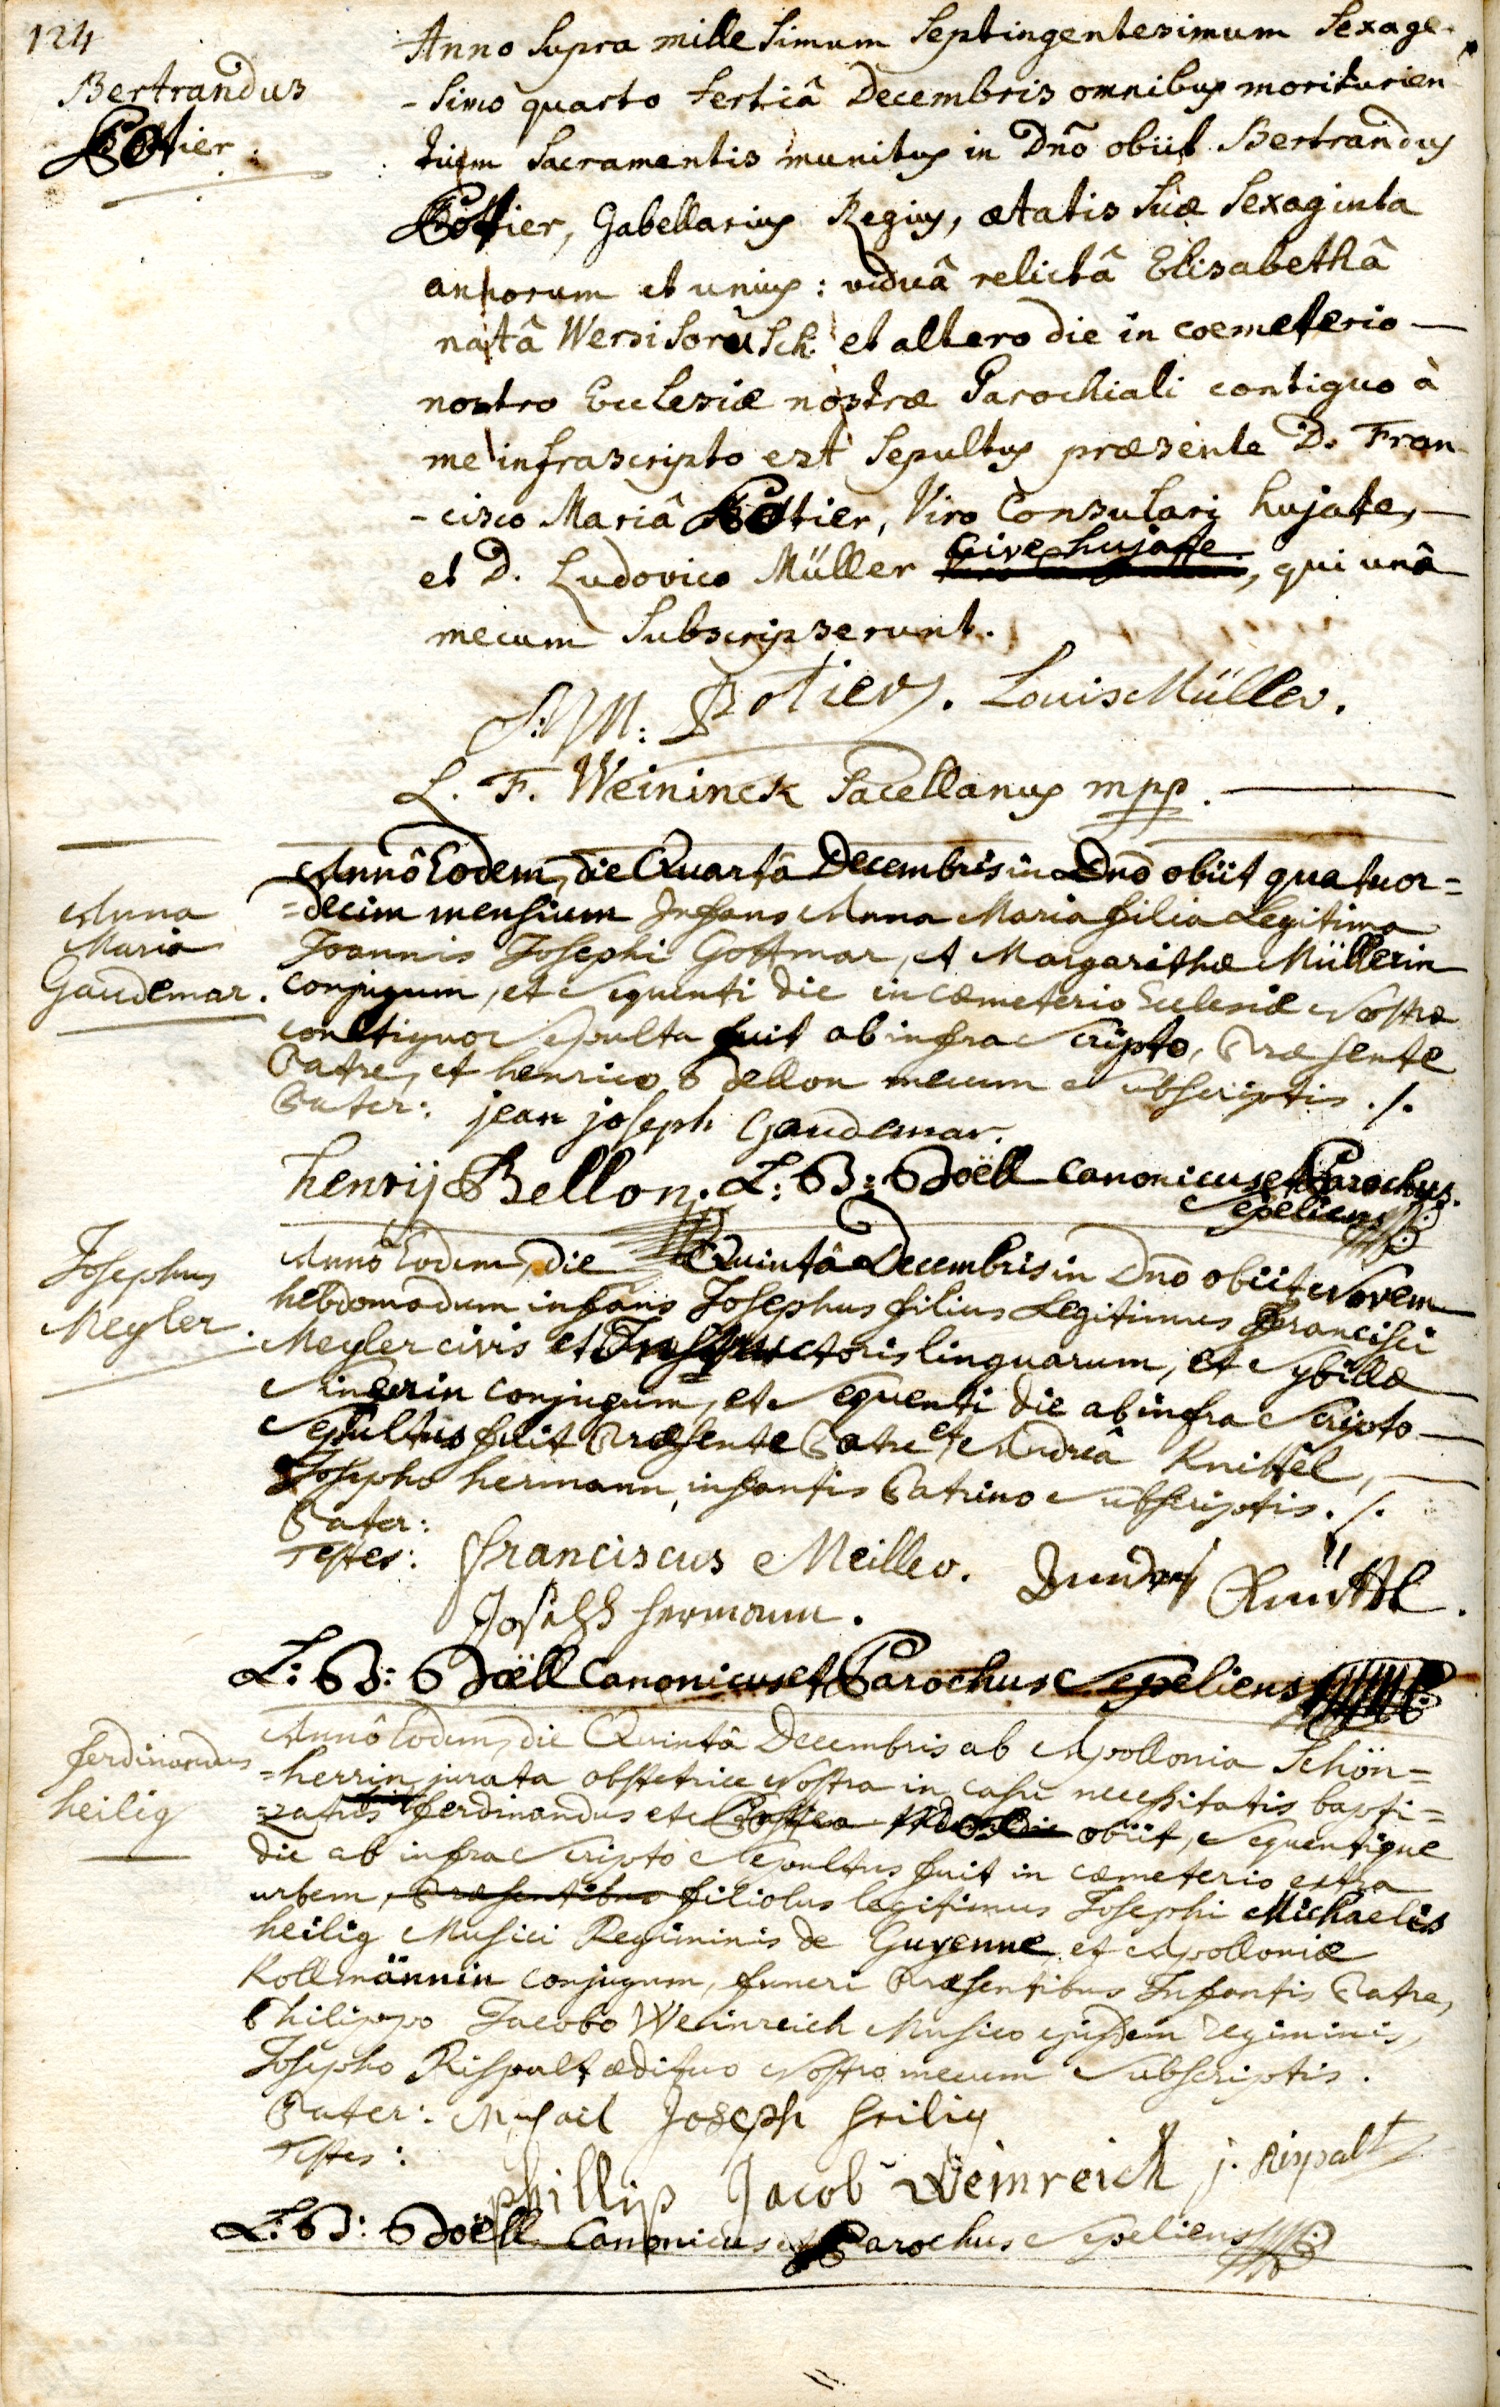 124
Bertrandus
Pottier.
Anno supra millesimum septingentesimum sexage-
-simo quarto tertiâ Decembris omnibus moriturien
tium Sacramentis munitus in Dño obiit Bertrandus
Pottier, Gabellarius Regius, ætatis suæ sexaginta
annorum et unius: viduâ relictâ Elisabethâ
natâ et altero die in coemeterio —
nostro Ecclesiæ nostræ Parochiali contiguo à
me infrascripto est sepultus præsente D. Fran
-cisco Mariâ Pottier, Viro Consulari hujate, —
et D. Ludovico Müller Cive hujate, qui unâ
mecum subscripserunt.
F: M: Potier. Louis Müller.
L. F. Weininck Sacellanus mpp.
Anna
Maria
Gaudemar.
Annô Eodem, die Quartâ Decembris in Dnô obiit quatuor=
=decim mensium Infans Anna Maria filia Legitima
Joannis Josephi Gottmar, et Margarithæ Müllerin
Conjugum, et sequenti die in cæmeterio Ecclesiæ Nostræ
contiguo sepulta fuit ab infra scripto, Præsente
Patre, et henrico Bellon mecum subscriptis ./.
Pater: jean joseph Gaudemar.
henrij Bellon. L: B: Boëll Canonicus et Parochus
sepeliens
Josephus
Meyler.
Annô Eodem, die Quintâ Decembris in Dnô obiit Novem
hebdomadum infans Josephus filius Legitimus Francisci
Meyler civis et Instructoris linguarum, et Sybillæ
Singerin conjugum, et sequenti die ab infra scripto —
sepultus fuit Præsente Patre et Andreâ Knittel, —
Josepho hermann, infantis Patrino subscriptis ./.
Pater:
Testes: franciscus Meiller. Andreas Knittel.
Joseph hermann.
L: B: Boëll Canonicus et Parochus sepeliens
ferdinandus
heilig
Annô Eodem, die Quintâ Decembris ab Apollonia Schön=
=herrin jurata obstetrice Nostra in casu necessitatis bapti=
=zatus ferdinandus et Postea obiit, sequentique
die ab infra scripto sepultus fuit in cæmeterio extra
urbem, Præsentibus filiolus legitimus Josephi Michaelis
heilig Musici Regiminis de Guyenne, et Apolloniæ
Kollmännin conjugum, funeri Præsentibus Infantis Patre,
Philippo Jacobo Weinreich Musico ejusdem regiminis,
Josepho Rispalt ædituo Nostro mecum subscriptis.
Pater: Joseph heilig
Testes:
phillip Jacob Weinreich j. Rispalt
L: B: Boëll Canonicus et Parochus sepeliens